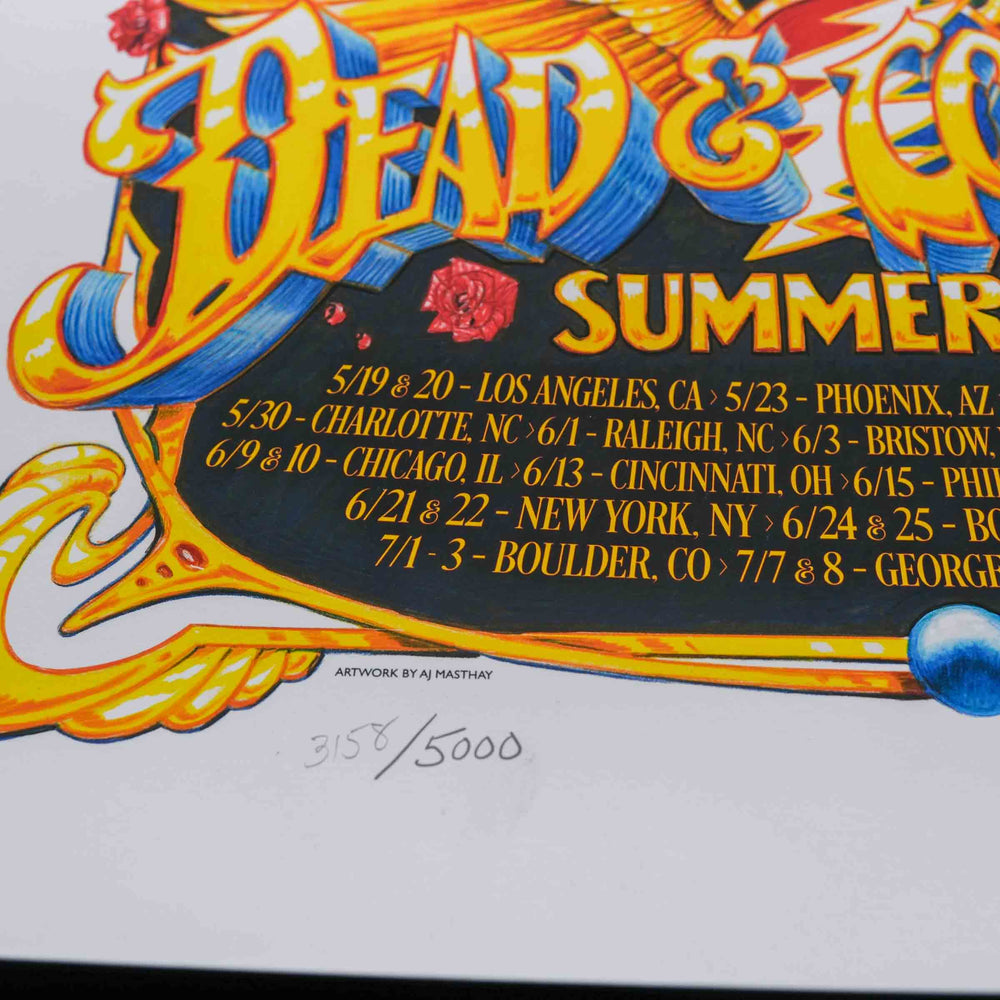 DEAD & CO
SUMMER
5/19 & 20 - LOS ANGELES, CA > 5/23 - PHOENIX, AZ
5/30 - CHARLOTTE, NC > 6/1 - RALEIGH, NC > 6/3 - BRISTOW,
6/9 & 10 - CHICAGO, IL > 6/13 - CINCINNATI, OH > 6/15 - PHI
6/21 & 22 - NEW YORK, NY > 6/24 & 25 - BO
7/1 - 3 - BOULDER, CO > 7/7 & 8 - GEORGE
ARTWORK BY AJ MASTHAY
3158/5000